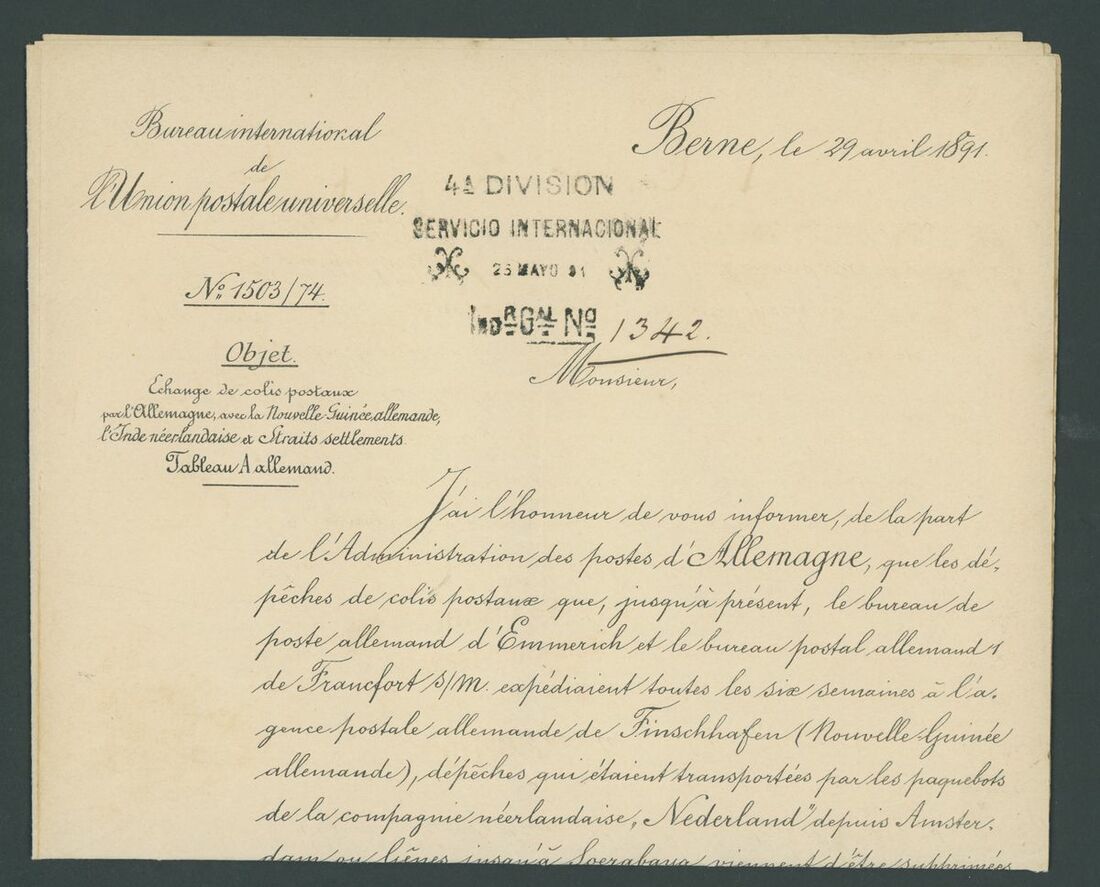 Bureau international
de
l'Union postale universelle.
Berne, le 29 avril 1891.
4A DIVISION
SERVICIO INTERNACIONAL
MAYO 91
No 1503/74.
GAL No 1342.
Objet.
Monsieur,
Echange de colis postaux
par l'Allemagne, avec la Nouvelle-Guinée allemande,
l'Inde néerlandaise et Straits settlements
Tableau A allemand.
J'ai l'honneur de vous informer, de la part
de l'Administration des postes d'Allemagne, que les dé-
pêches de colis postaux que, jusqu'à présent, le bureau de
poste allemand d'Emmerich et le bureau postal allemand 1
de Francfort s/M. expédiaient toutes les six semaines à l'a-
gence postale allemande de Finschhafen (Nouvelle-Guinée
allemande), dépêches qui étaient transportées par les paquebots
de la compagnie néerlandaise „Nederland" depuis Amster-
dam ou Gênes jusqu'à Soerabaya viennent d'être supprimées